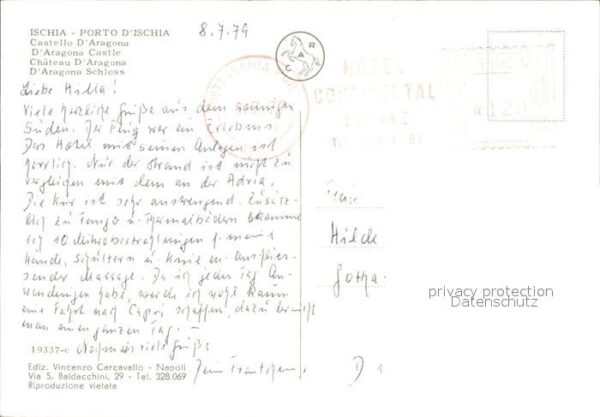 ISCHIA - PORTO D'ISCHIA
Castello D'Aragona
D'Aragona Castle
Château D'Aragona
D'Aragona Schloss
8.7.79
CAR
HOTEL
CONTINENTAL
120
Liebe Hilda!
Viele herzliche Grüße aus dem sonnigen
Süden. Der Flug war ein Erlebnis.
Das Hotel mit seinen Anlagen ist
herrlich. Nur der Strand ist nicht zu
vergleichen mit dem an der Adria.
Die Kur ist sehr anstrengend. Zusätz-
lich zu Fango u. Thermalbädern bekomme
ich 10 f. meine
Hände, Schultern u. Knie m. anschlies-
sender Massage. Da ich jeden Tag An-
wendungen habe, werde ich wohl kaum
eine Fahrt nach Capri schaffen, dazu braucht
man einen ganzen Tag. —
Nochmals viele Grüße
Frau
Hilde
Gotha
privacy protection
Datenschutz
19337-c
Ediz. Vincenzo Carcavallo - Napoli
Via S. Baldacchini, 29 - Tel. 328.069
Riproduzione vietata
D